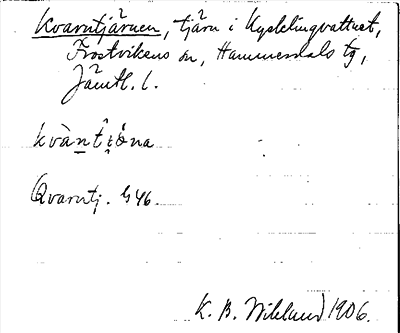 Kvarntjärnen, tjärn i Kycklingvattnet,
Frostvikens sn, Hammerdals tg,
Jämtl. l.
kvàntiǿna
Qvarntj. G 46.
K. B. Wiklund 1906.